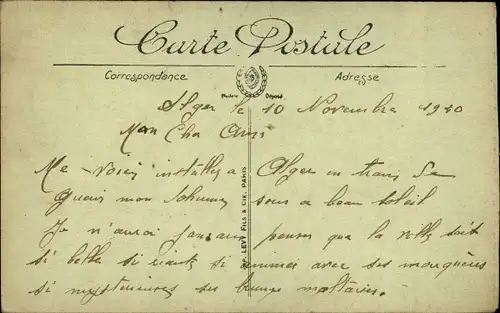 Carte Postale
Correspondance
Adresse
Modèle Déposé
LEVY FILS & CIE. PARIS
Alger le 10 Novembre 1920
Mon Cher Ami
Me voici installé a Alger en train de
mon sous ce beau soleil
Je n'aurai jamais penser que la ville soit
si belle si si animée avec ses mouquères
si mystérieuses ses